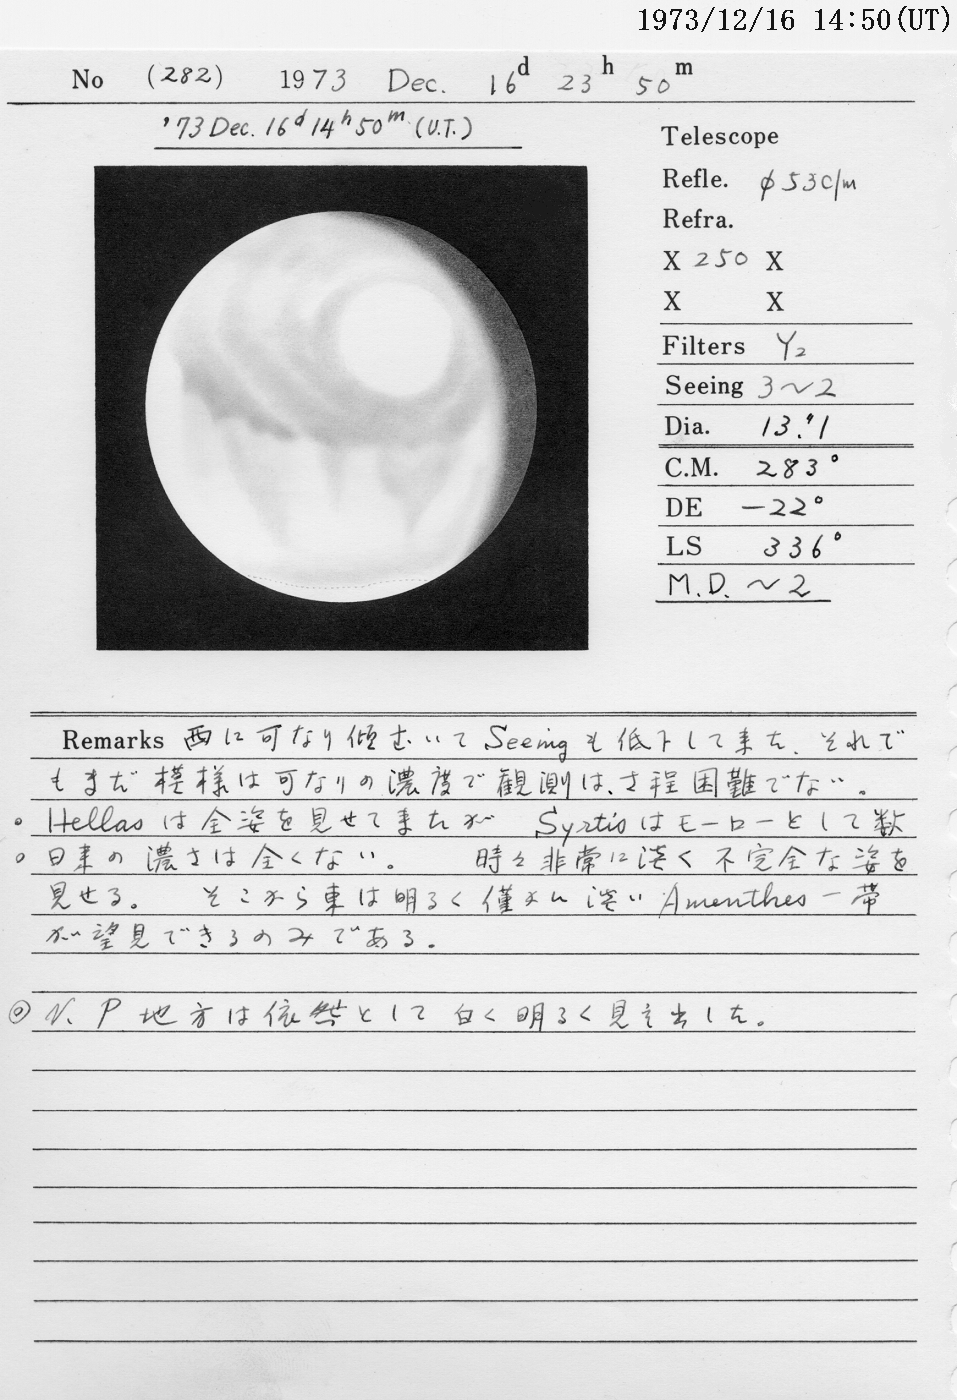 1973/12/16 14:50(UT)
No (282) 1973 Dec. 16d 23h 50m
'73 Dec. 16d 14h 50m (U.T.)
Telescope
Refle. φ53c/m
Refra.
X 250 X
X X
Filters Y2
Seeing 3~2
Dia. 13."1
C.M. 283°
DE -22°
LS 336°
M.D. ~2
Remarks 西に可なり傾むいてSeeingも低下して来た、それで
もまだ模様は可なりの濃度で観測は、さ程困難でない。
• Hellasは全姿を見せて来たが Syrtisはモーローとして数
○ 日来の濃さは全くない。 時々非常に淡く不完全な姿を
見せる。 そこから東は明るく僅かに淡いAmenthes一帯
が望見できるのみである。
◎ N.P.地方は依然として白く明るく見え出した。